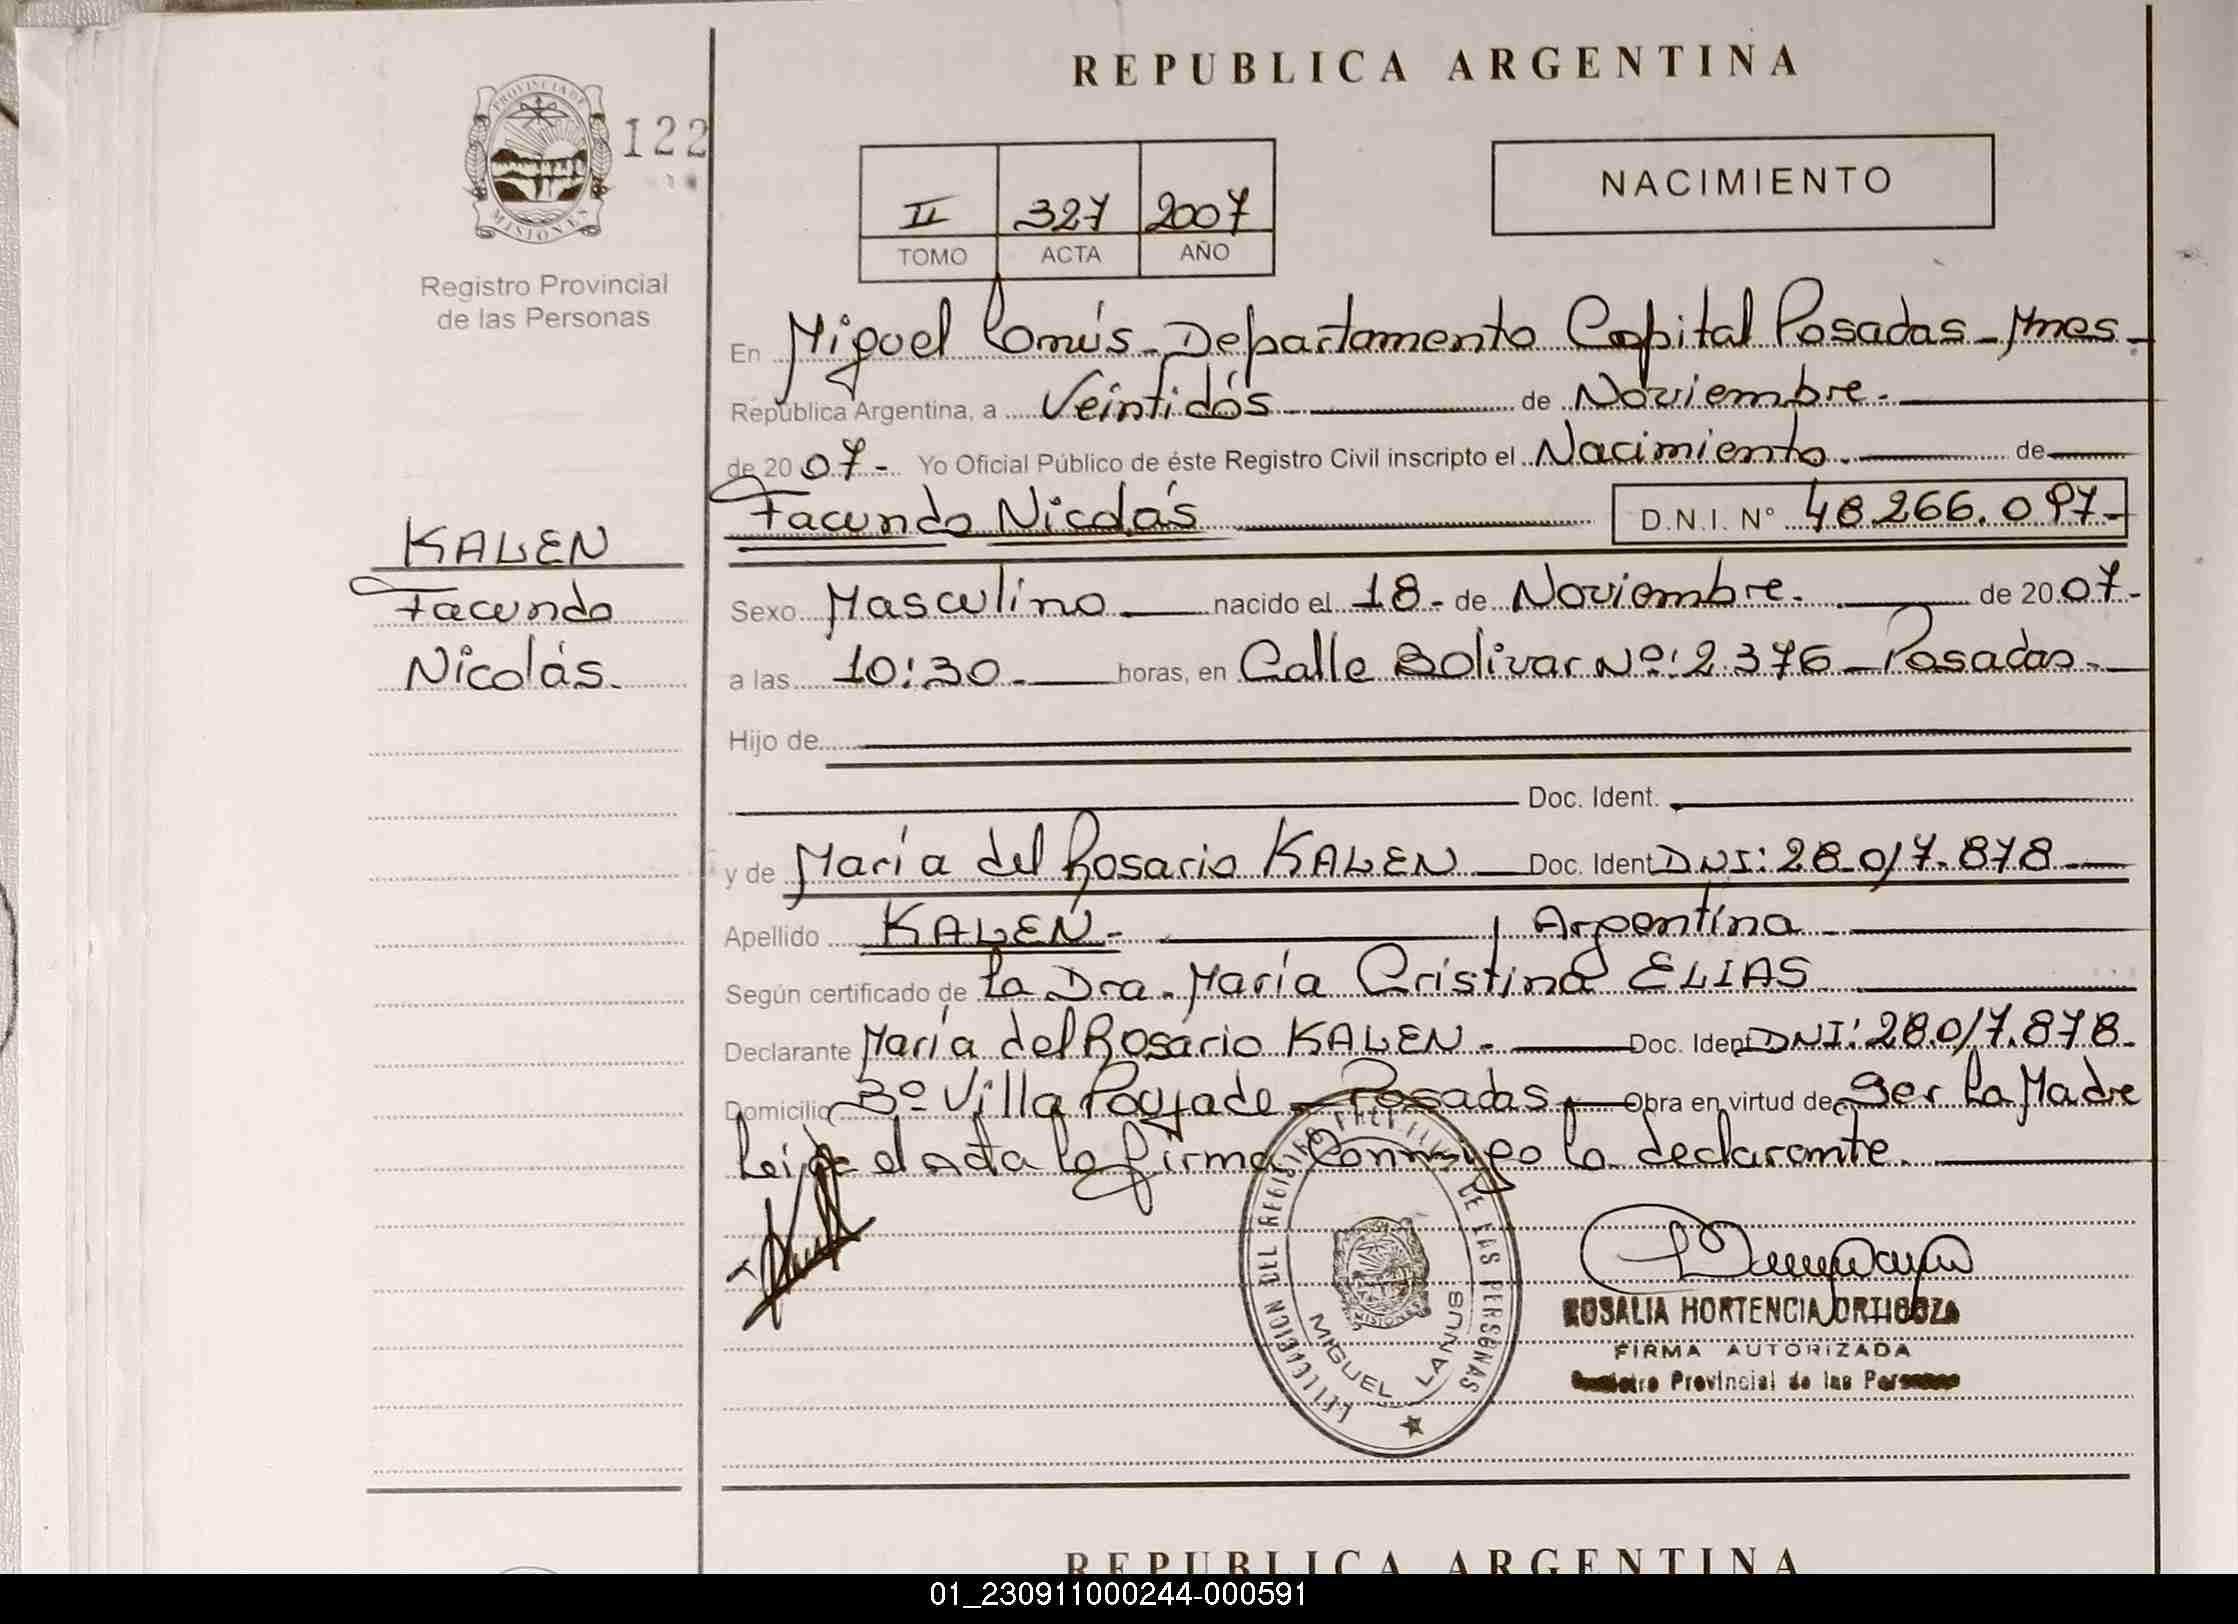 REPUBLICA ARGENTINA
PROVINCIA DE
MISIONES
122
Registro Provincial
de las Personas
II 327 2007
TOMO ACTA AÑO
NACIMIENTO
En Miguel Lanús - Departamento Capital Posadas - Mnes -
República Argentina, a Veintidós de Noviembre.
de 2007 - Yo Oficial Público de éste Registro Civil inscripto el Nacimiento. de
Facundo Nicolás D.N.I. Nº 48.266.097-
KALEN
Facundo
Nicolás.
Sexo Masculino nacido el 18 - de Noviembre. de 2007-
a las 10:30 horas, en Calle Bolivar Nº: 2.376 - Posadas.
Hijo de
Doc. Ident.
y de María del Rosario KALEN Doc. Ident DNI: 28.017.878
Apellido KALEN - Argentina
Según certificado de La Dra. María Cristina ELIAS
Declarante María del Rosario KALEN - Doc. Ident DNI: 28.017.878.
Domicilio Bº Villa Poujade - Posadas. Obra en virtud de Ser La Madre
Leida el acta la firma Conmigo la declarante.
DELEGACION DEL REGISTRO PROVINCIAL DE LAS PERSONAS
MISIONES
MIGUEL LANUS
ROSALIA HORTENCIA ORTIGOZA
FIRMA AUTORIZADA
Registro Provincial de las Personas
REPUBLICA ARGENTINA
01_230911000244-000591